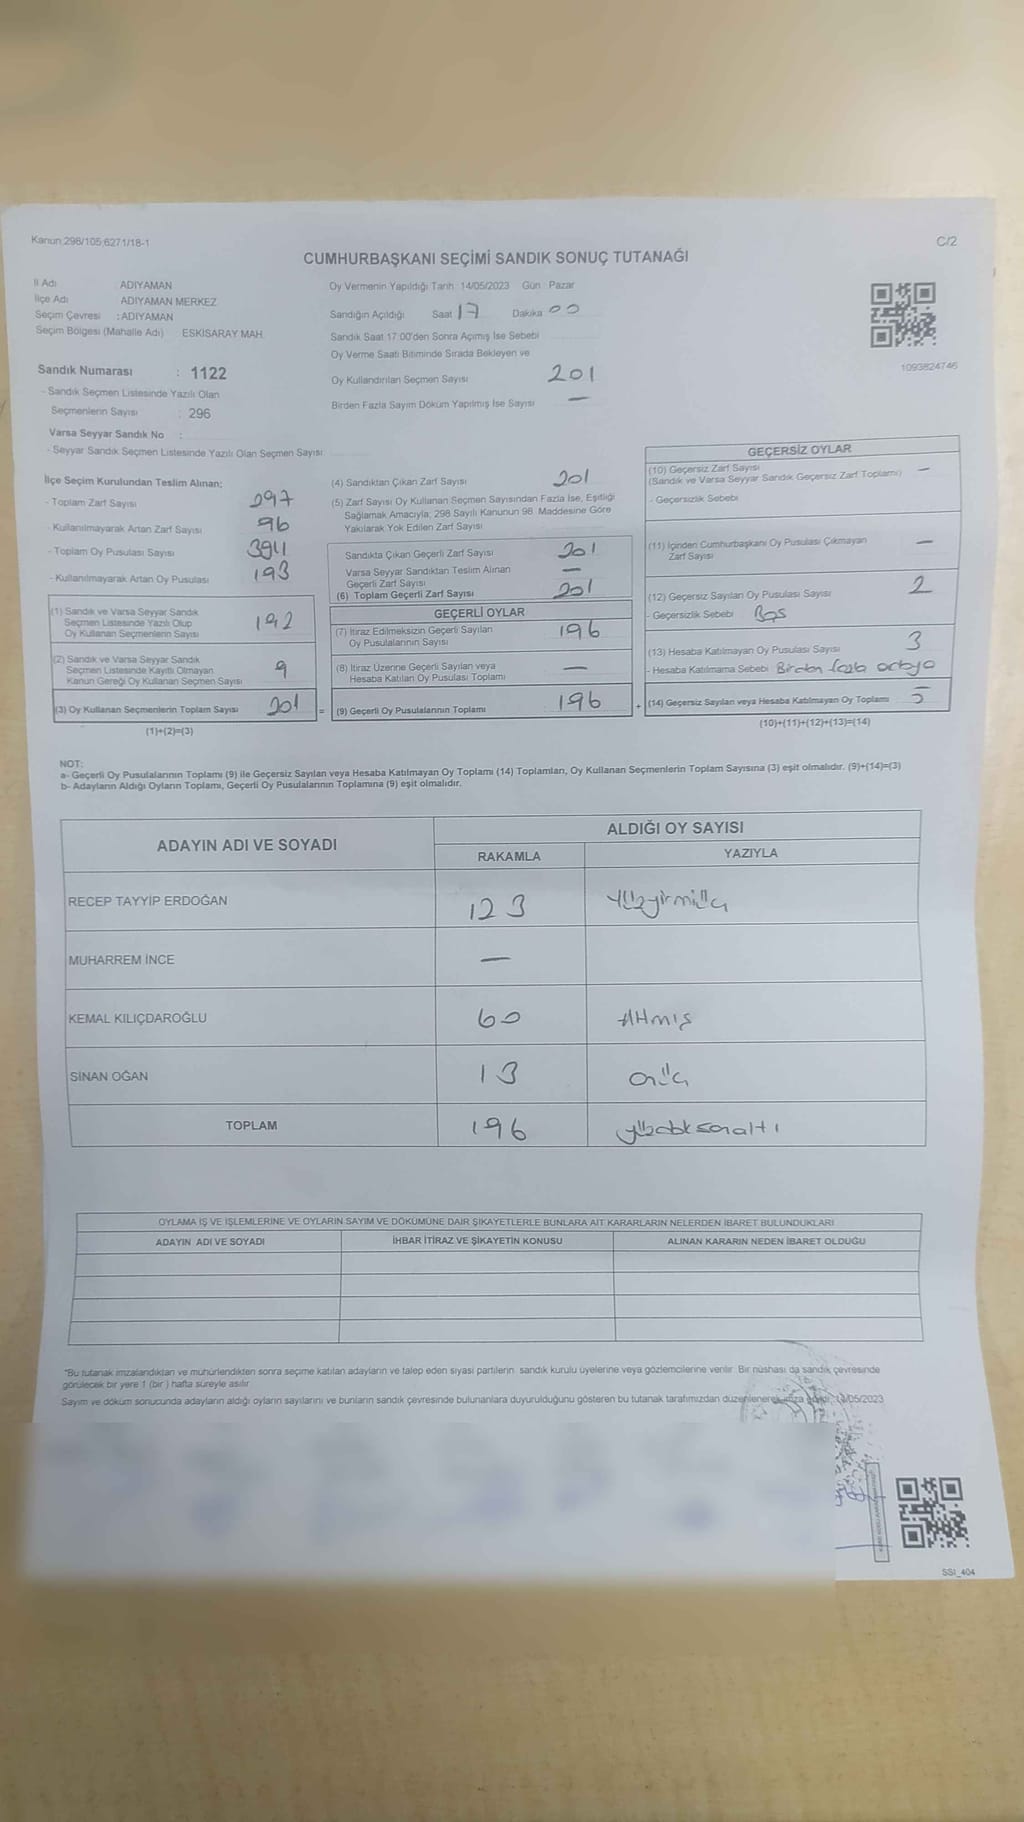 Kanun;298/105;6271/18-1
C/2
CUMHURBAŞKANI SEÇİMİ SANDIK SONUÇ TUTANAĞI
İl Adı ADIYAMAN
İlçe Adı ADIYAMAN MERKEZ
Seçim Çevresi : ADIYAMAN
Seçim Bölgesi (Mahalle Adı) ESKİSARAY MAH.
Oy Vermenin Yapıldığı Tarih : 14/05/2023 Gün : Pazar
Sandığın Açıldığı Saat 17 Dakika 00
Sandık Saat 17:00'den Sonra Açımış İse Sebebi
Oy Verme Saati Bitiminde Sırada Bekleyen ve
Oy Kullandırılan Seçmen Sayısı 201
Birden Fazla Sayım Döküm Yapılmış İse Sayısı —
1093824746
Sandık Numarası : 1122
- Sandık Seçmen Listesinde Yazılı Olan
Seçmenlerin Sayısı : 296
Varsa Seyyar Sandık No :
- Seyyar Sandık Seçmen Listesinde Yazılı Olan Seçmen Sayısı
İlçe Seçim Kurulundan Teslim Alınan;
- Toplam Zarf Sayısı 297
- Kullanılmayarak Artan Zarf Sayısı 96
- Toplam Oy Pusulası Sayısı
- Kullanılmayarak Artan Oy Pusulası 193
(1) Sandık ve Varsa Seyyar Sandık
Seçmen Listesinde Yazılı Olup
Oy Kullanan Seçmenlerin Sayısı 192
(2) Sandık ve Varsa Seyyar Sandık
Seçmen Listesinde Kayıtlı Olmayan
Kanun Gereği Oy Kullanan Seçmen Sayısı 9
(3) Oy Kullanan Seçmenlerin Toplam Sayısı 201 =
(1)+(2)=(3)
(4) Sandıktan Çıkan Zarf Sayısı 201
(5) Zarf Sayısı Oy Kullanan Seçmen Sayısından Fazla İse, Eşitliği
Sağlamak Amacıyla; 298 Sayılı Kanunun 98. Maddesine Göre
Yakılarak Yok Edilen Zarf Sayısı
Sandıkta Çıkan Geçerli Zarf Sayısı 201
Varsa Seyyar Sandıktan Teslim Alınan
Geçerli Zarf Sayısı —
(6) Toplam Geçerli Zarf Sayısı 201
GEÇERLİ OYLAR
(7) İtiraz Edilmeksizin Geçerli Sayılan
Oy Pusulalarının Sayısı 196
(8) İtiraz Üzerine Geçerli Sayılan veya
Hesaba Katılan Oy Pusulası Toplamı —
(9) Geçerli Oy Pusulalarının Toplamı 196 +
GEÇERSİZ OYLAR
(10) Geçersiz Zarf Sayısı
(Sandık ve Varsa Seyyar Sandık Geçersiz Zarf Toplamı) —
- Geçersizlik Sebebi
(11) İçinden Cumhurbaşkanı Oy Pusulası Çıkmayan
Zarf Sayısı —
(12) Geçersiz Sayılan Oy Pusulası Sayısı 2
- Geçersizlik Sebebi Boş
(13) Hesaba Katılmayan Oy Pusulası Sayısı 3
- Hesaba Katılmama Sebebi Birden fazla
(14) Geçersiz Sayılan veya Hesaba Katılmayan Oy Toplamı 5
(10)+(11)+(12)+(13)=(14)
NOT:
a- Geçerli Oy Pusulalarının Toplamı (9) ile Geçersiz Sayılan veya Hesaba Katılmayan Oy Toplamı (14) Toplamları, Oy Kullanan Seçmenlerin Toplam Sayısına (3) eşit olmalıdır. (9)+(14)=(3)
b- Adayların Aldığı Oyların Toplamı, Geçerli Oy Pusulalarının Toplamına (9) eşit olmalıdır.
ADAYIN ADI VE SOYADI
ALDIĞI OY SAYISI
RAKAMLA YAZIYLA
RECEP TAYYİP ERDOĞAN 123 Yüzyirmiüç
MUHARREM İNCE —
KEMAL KILIÇDAROĞLU 60 Altmış
SİNAN OĞAN 13 onüç
TOPLAM 196 yüzdoksanaltı
OYLAMA İŞ VE İŞLEMLERİNE VE OYLARIN SAYIM VE DÖKÜMÜNE DAİR ŞİKAYETLERLE BUNLARA AİT KARARLARIN NELERDEN İBARET BULUNDUKLARI
ADAYIN ADI VE SOYADI İHBAR İTİRAZ VE ŞİKAYETİN KONUSU ALINAN KARARIN NEDEN İBARET OLDUĞU
"Bu tutanak imzalandıktan ve mühürlendikten sonra seçime katılan adayların ve talep eden siyasi partilerin sandık kurulu üyelerine veya gözlemcilerine verilir. Bir nüshası da sandık çevresinde
görülecek bir yere 1 (bir) hafta süreyle asılır.
Sayım ve döküm sonucunda adayların aldığı oyların sayılarını ve bunların sandık çevresinde bulunanlara duyurulduğunu gösteren bu tutanak tarafımızdan düzenlenerek imza 14/05/2023
SSI_404